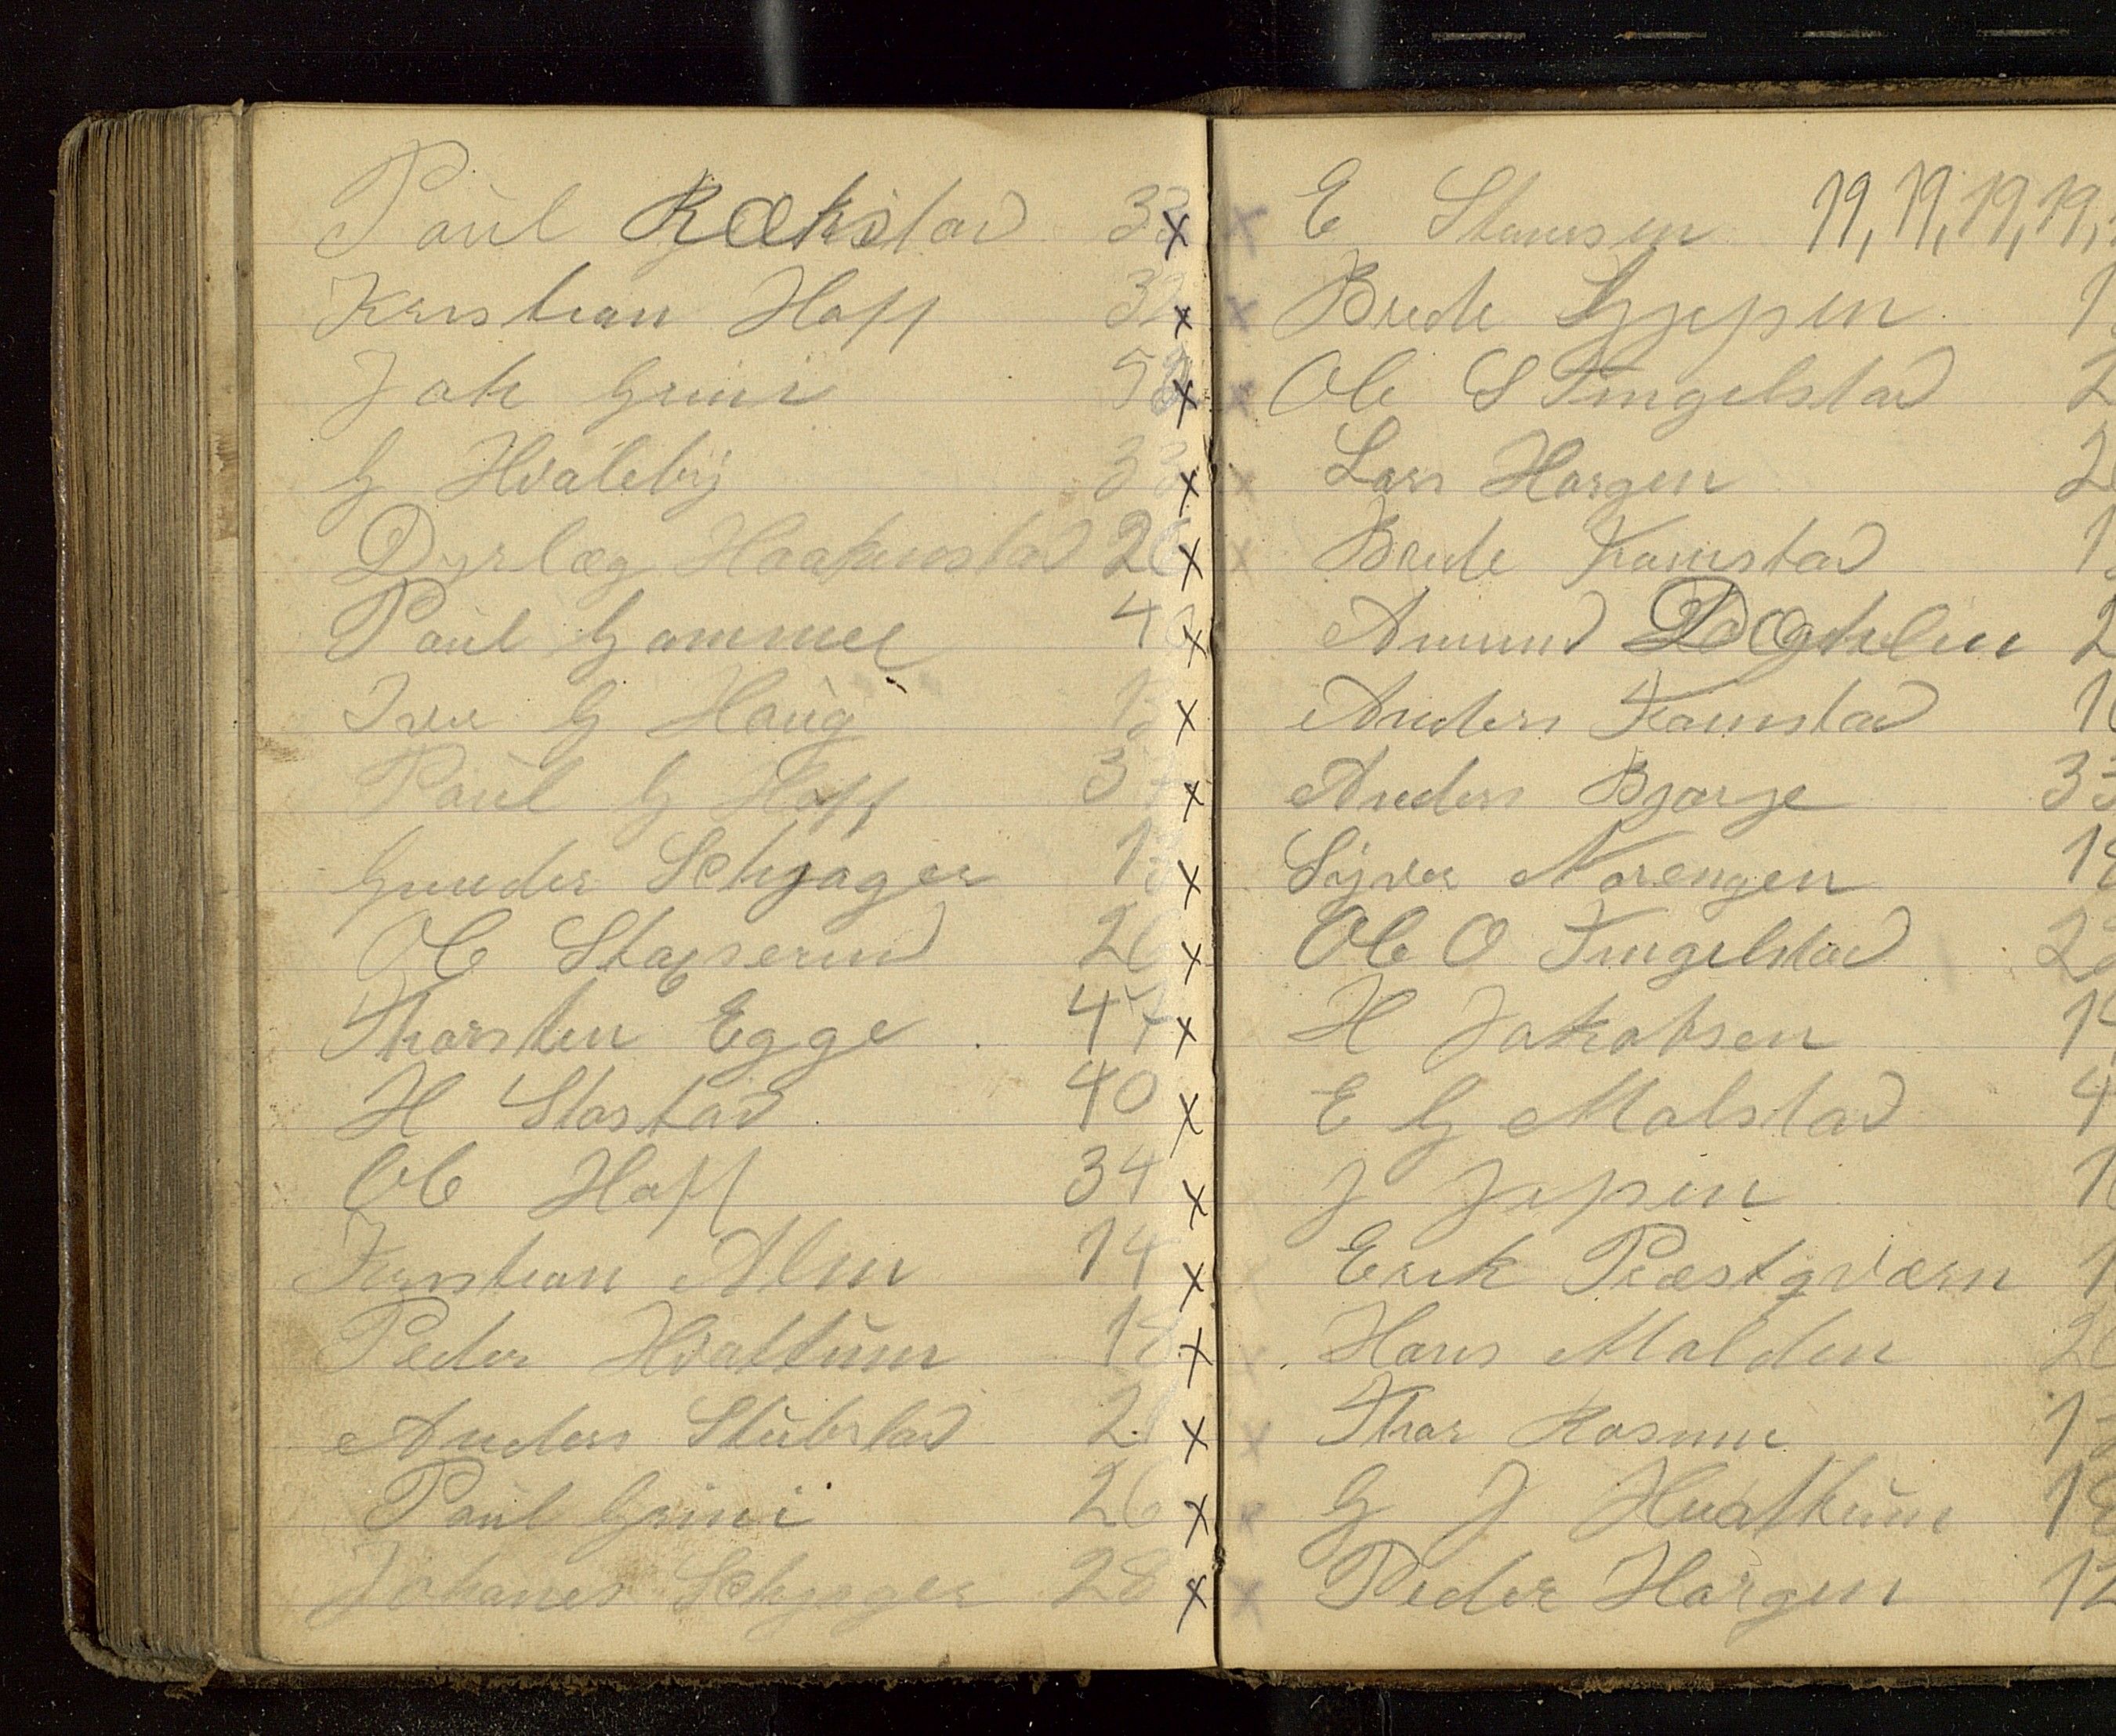 Paul Rækstad 33 x
Kristian Hoff 32 x
Jak Grini x
G Hvaleby 33 x
Dyrlæg Haakenstad 20 x
Paul Gammel x
Iver G Haug x
Paul G Hoff 3 x
Gunder Schjager x
Ole Stapserud 20 x
Thorsten Egge 47 x
H Slastad 40 x
Ole Hoff 34 x
Kristian Alm 14 x
Peder Hvattum x
Anders Stubstad x
Paul Grini 26 x
Johanes Schjager 28 x
x E 19, 19, 19, 19,
x Brede
x Ole S Tingelstad 2
x Lars Horgen 2
x Brede Framstad 1
Amund Dæhlen 2
Anders Framstad 1
Anders Bjørge 33
Syver Norengen 18
Ole O Tingelstad 22
H Jakobsen 1
E G Molstad 4
J Jepsen 1
Erik Præstqværn 1
Hans Molden 20
x Thor Rosnes 1
x G J Hvattum 18
x Peder Horgen 12